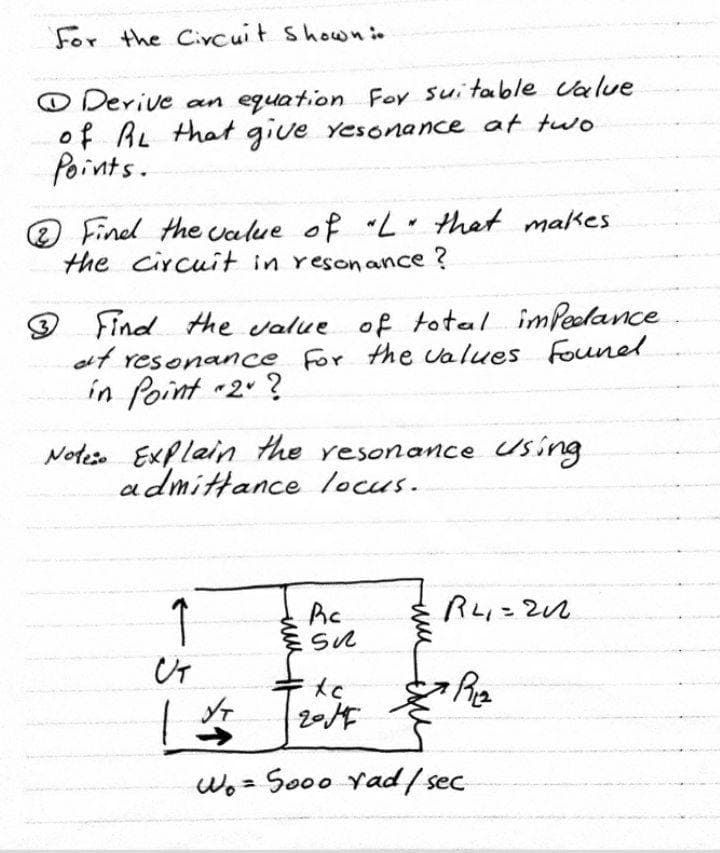 For the Circuit shown:
① Derive an equation for suitable value
of RL that give resonance at two
Points.
② Find the value of "L" that makes
the circuit in resonance?
③ Find the value of total impedance
at resonance for the values found
in Point "2"?
Note: Explain the resonance using
admittance locus.
Rc
5Ω
RL1 = 2Ω
UT
Xc
RL2
YT
20µF
Wo = 5000 rad/sec